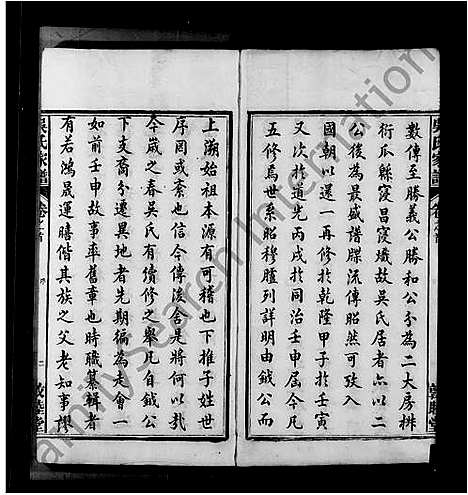 數傳至勝義公勝和公分為二大房椒
衍瓜緜寖昌寖熾故吳氏居者以二
公後為最盛譜牒流傳昭然可攷入
國朝以還一再修於乾隆甲子於壬寅
又次於道光丙戌於同治壬申屆今凡
五修焉世系昭穆臚列詳明由鉞公而
上溯始祖本源有可稽也下推子姓世
序罔或紊也信今傳後舍是將何以哉
今歲之春吳氏有續修之舉凡自鉞公
下支裔分遷異地者先期徧為走會一
如前壬申故事率舊章也時職纂輯者
有若鴻晟運暿偕其族之父老知事學
吳氏家譜
卷之首
二
敦睦堂
FamilySearch International